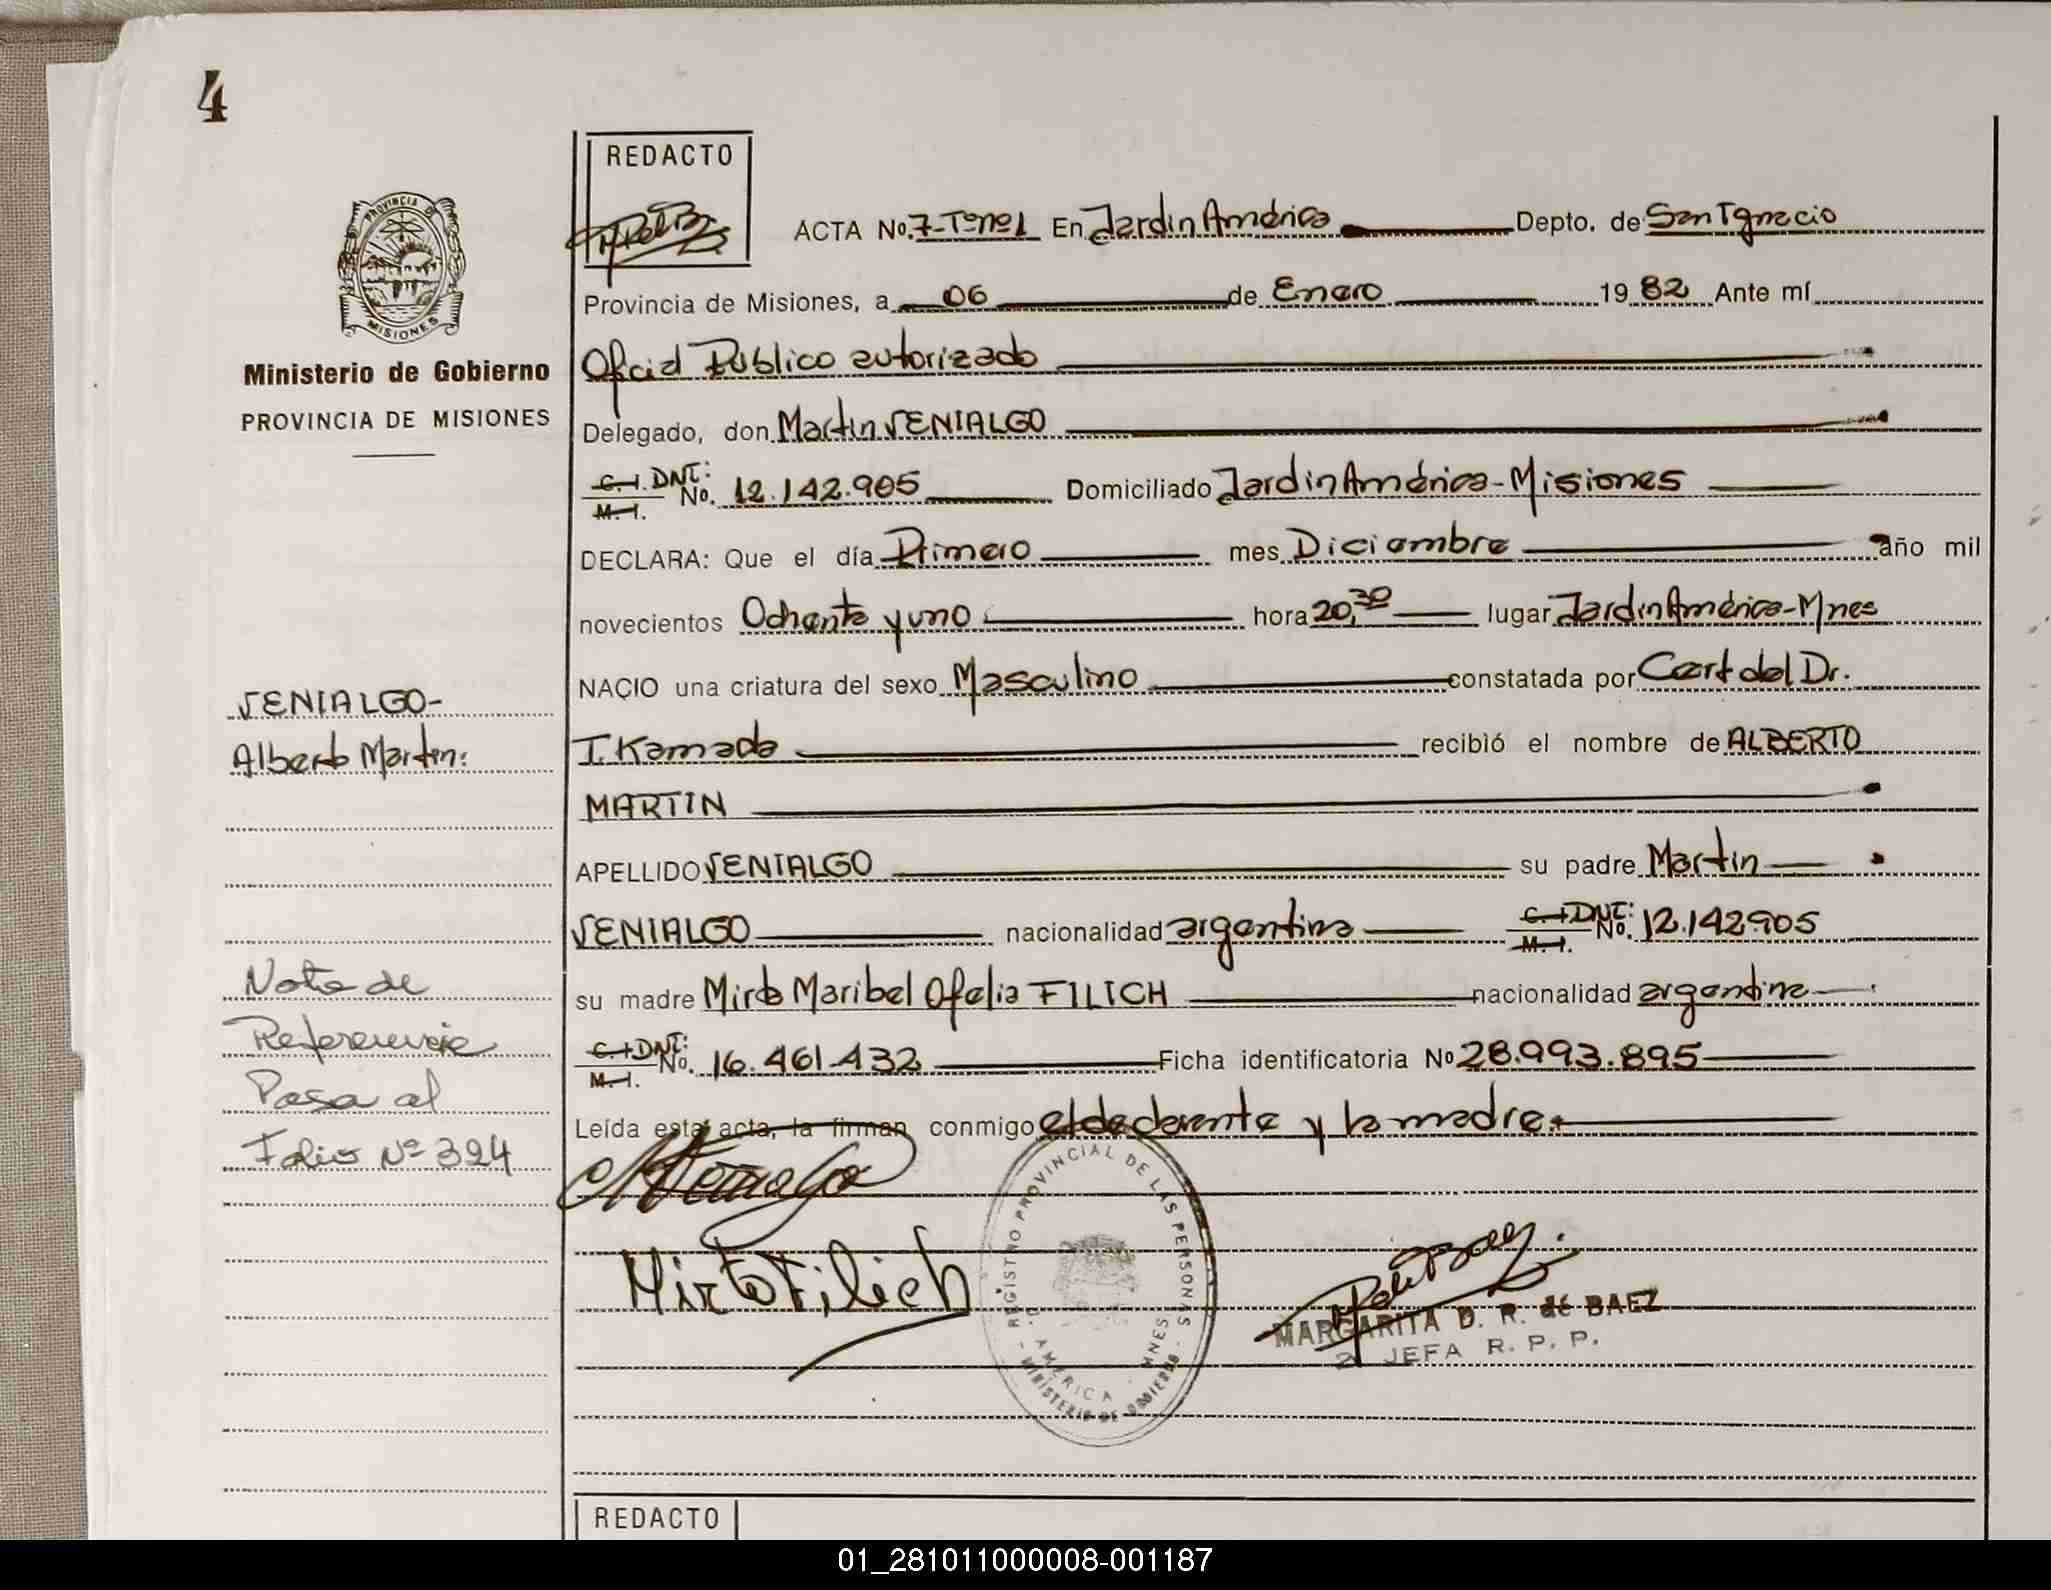 4
REDACTO
ACTA No. 7-Tomo 1 En Jardin América Depto. de San Ignacio
Provincia de Misiones, a 06 de Enero 1982 Ante mí
Oficial Público autorizado
Delegado, don Martin SENIALGO
C. I. DNI: M. I. No. 12.142.905 Domiciliado Jardin América-Misiones
DECLARA: Que el día Primero mes Diciembre año mil
novecientos Ochenta y uno hora 20,30 lugar Jardin América-Mnes
NACIO una criatura del sexo Masculino constatada por Cert del Dr.
I. Kamada recibió el nombre de ALBERTO
MARTIN
APELLIDO SENIALGO su padre Martin
SENIALGO nacionalidad argentina C. I. DNI: M. I. No. 12.142.905
su madre Mirta Maribel Ofelia FILICH nacionalidad argentina
C. I. DNI: M. I. No. 16.461.432 Ficha identificatoria No 28.993.895
Leída esta acta, la firman conmigo el declarante y la madre.
Mirta Filich
MARGARITA D. R. de BAEZ
2ª JEFA R. P. P.
REGISTRO PROVINCIAL DE LAS PERSONAS
MINISTERIO DE GOBIERNO
J. AMERICA - MNES.
PROVINCIA DE MISIONES
Ministerio de Gobierno
PROVINCIA DE MISIONES
SENIALGO-
Alberto Martin:
Nota de
Referencia
Pasa al
Folio Nº 394
REDACTO
01_281011000008-001187